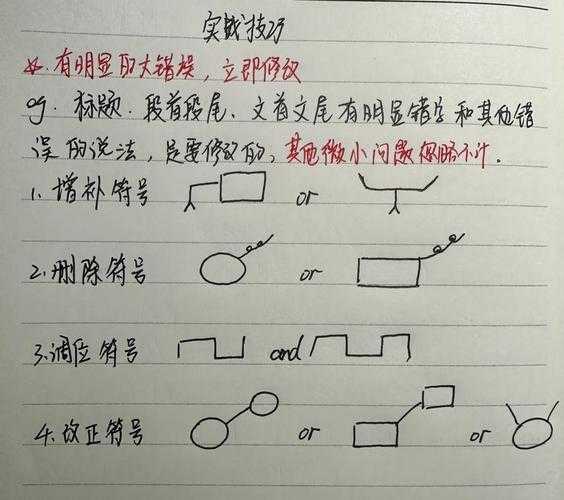 实战技巧
☆.有明显的大错误，立即修改
eg. 标题.段首段尾.文首文尾有明显错字和其他错
误的说法，是要修改的，其他微小问题忽略不计.
1.增补符号 or
2.删除符号 or
3.调位符号 and
4.改正符号 or or